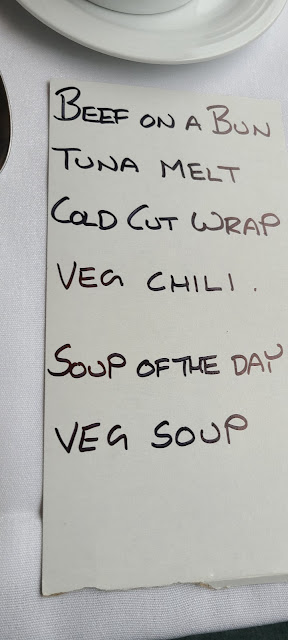 BEEF ON A BUN
TUNA MELT
COLD CUT WRAP
VEG CHILI.
SOUP OF THE DAY
VEG SOUP